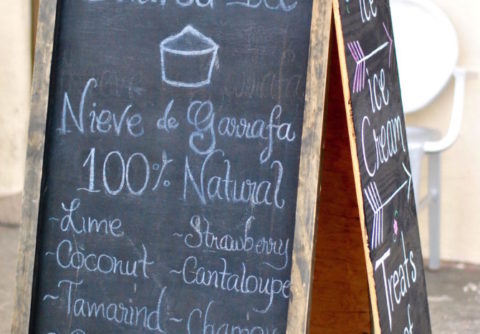 Nieve de Garrafa
100% Natural
~Lime
~Strawberry
~Coconut
~Cantaloupe
~Tamarind
~Chamoy
Ice
Ice
Cream
Treats